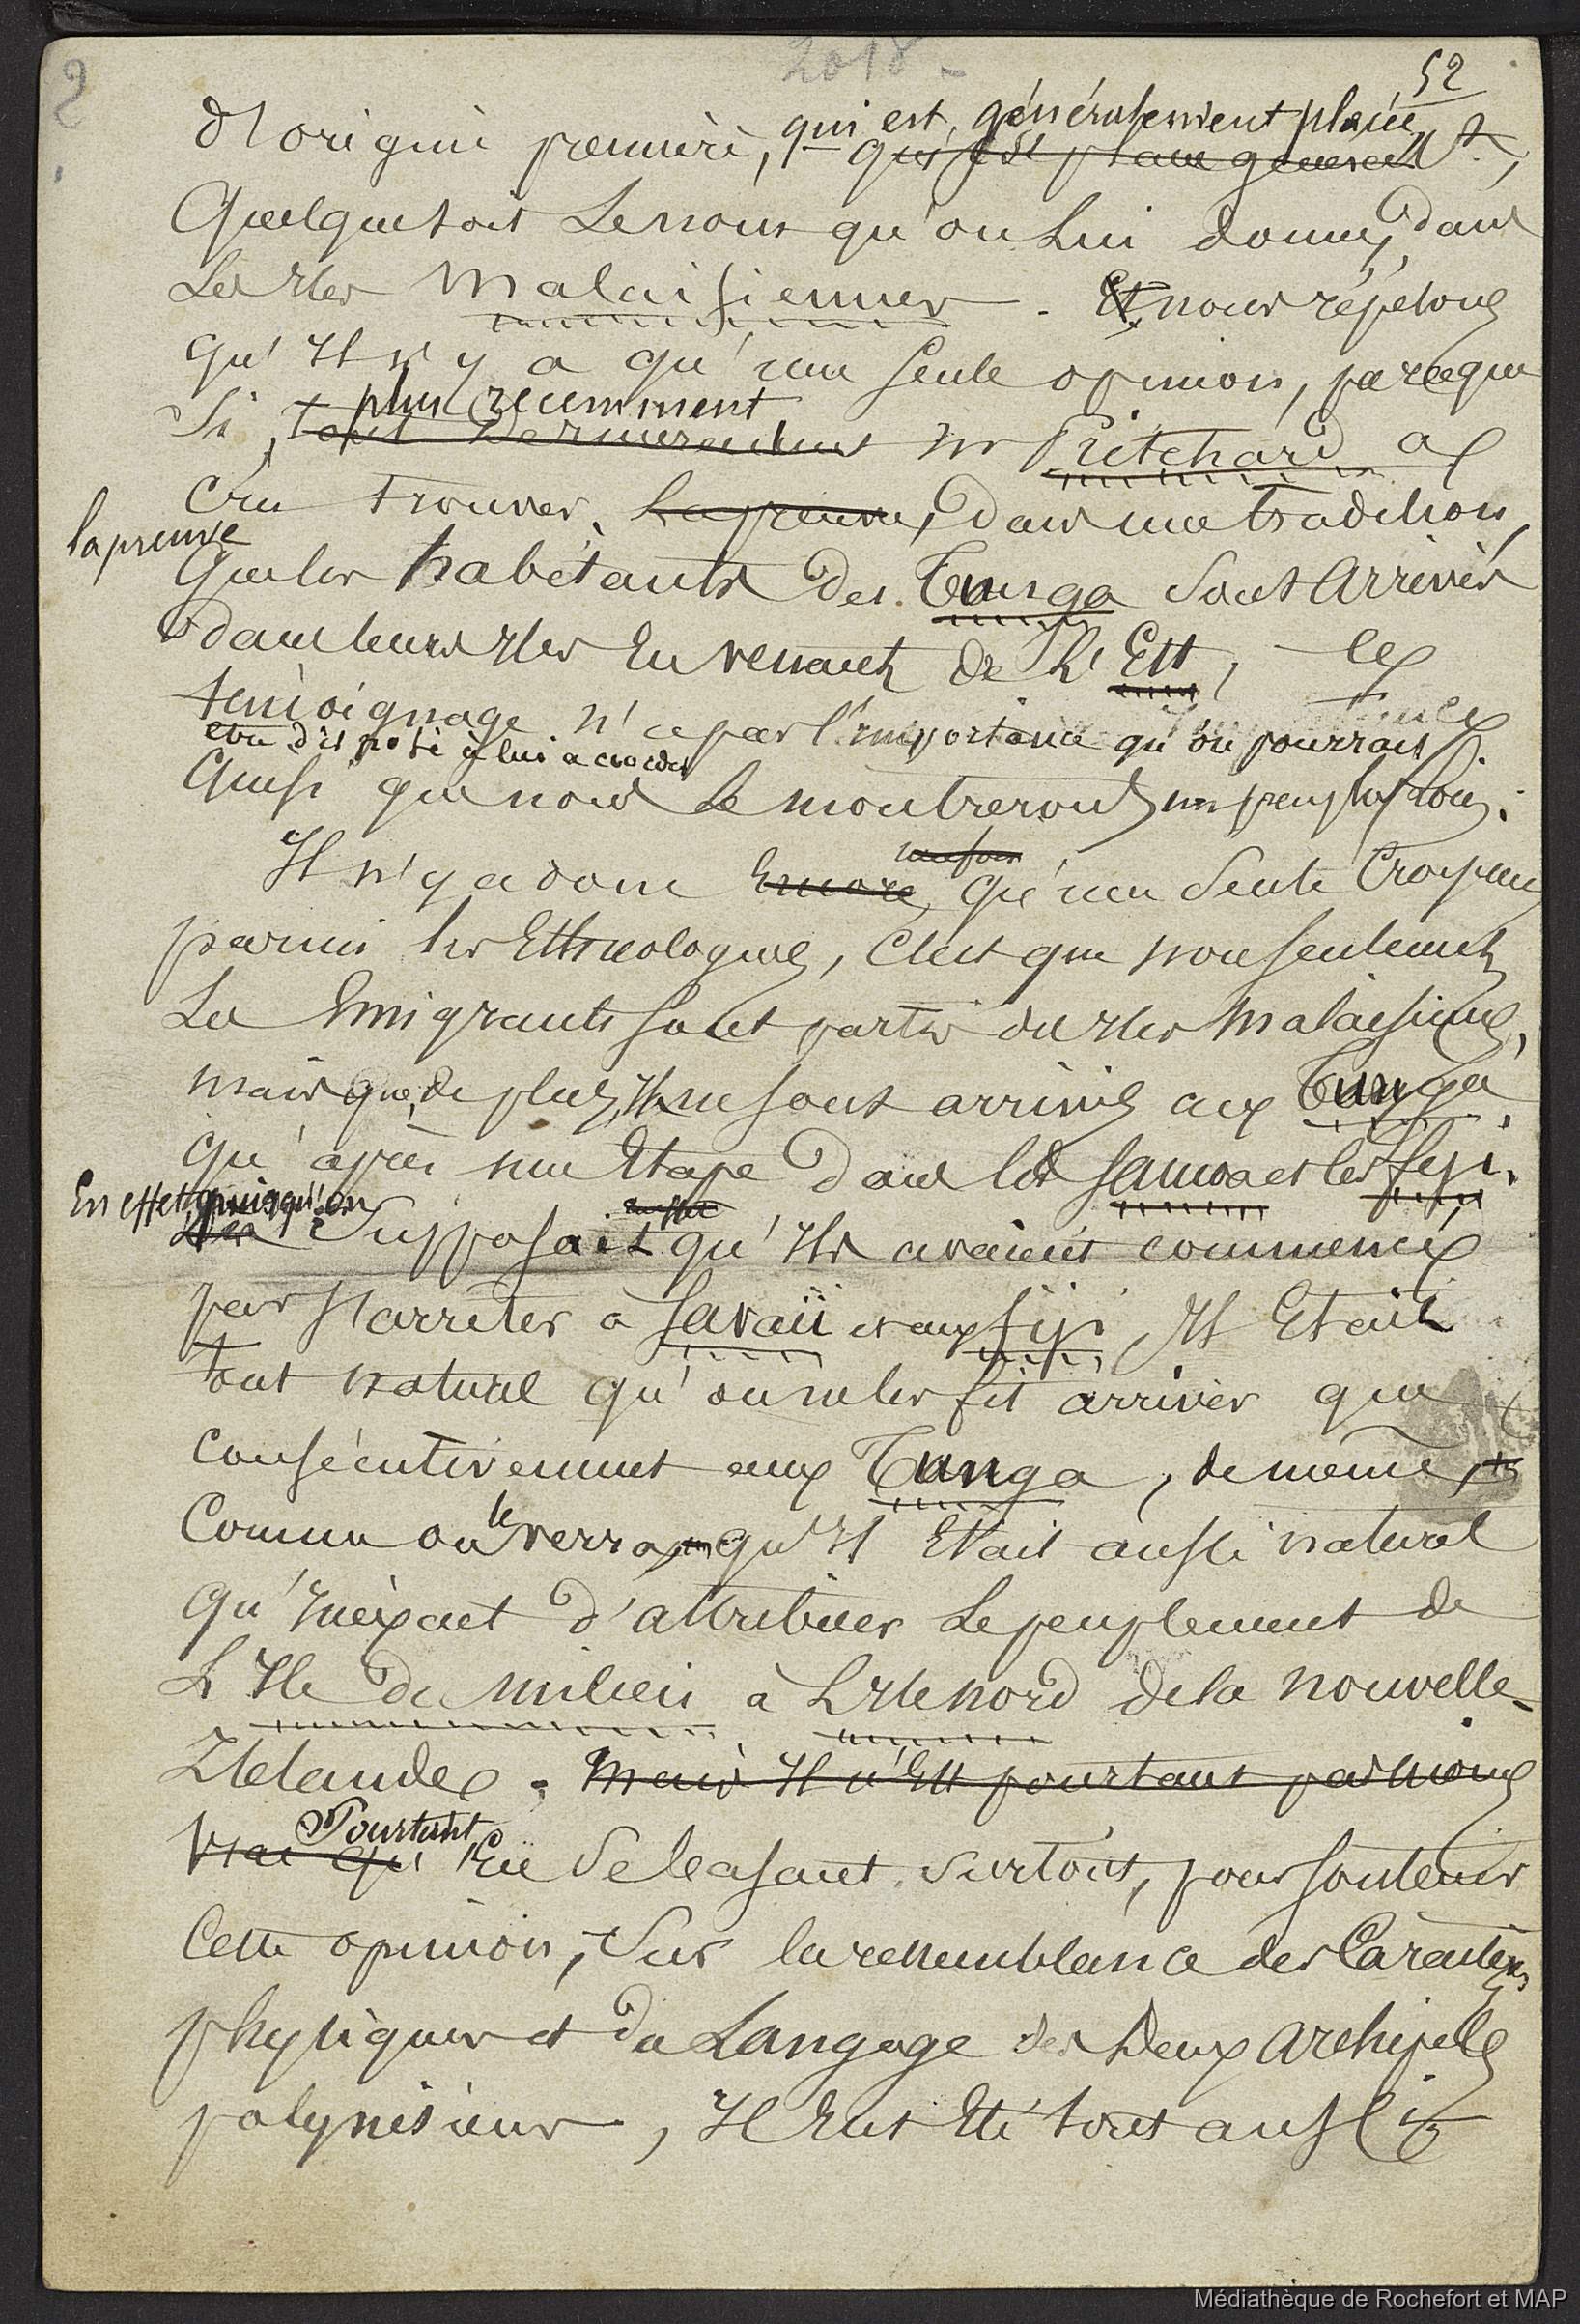 2
2018 -
52
d'origine première, qui est généralement placée
qui est placée généralt,
Quelque soit Le nom qu'on Lui donne, dans
Les Iles Malaisiennes. Et nous répétons
qu'Il n'y a qu'une seule opinion, parceque
plus récemment
Si, tout dernièrement Mr Pritchard a
Cru trouver, La preuve, dans une tradition,
la preuve
que les habitants des Tunga Sont Arrivés
dans leurs Iles En venant de L'Est, ce
temoignage n'a pas l'importance qu'on pourrait
être disposé à lui accorder
Ainsi que nous Le montrerons un peu plus loin.
Il n'y a donc Encore, qu'une Seule Croyance
parmi les Ethnologues, C'est que non seulement
Les Emigrants sont partis des Iles Malaisiennes,
mais que, de plus, Ils ne sont arrivés aux Tunga,
qu'après une Etape dans les Samoa et les Fiji.
En effet, puisqu'on
Supposait qu'Ils avaient commencé
par s'arrêter à Savaii et aux Fiji, Il Etait
tout naturel qu'on ne les fit arriver que
Consécutivement aux Tunga, de même,
Comme on le verra, qu'Il Etait aussi naturel
qu'Inexact d'attribuer Le peuplement de
L'Ile du milieu à L'Ile nord de la Nouvelle-
Zélande. Mais Il n'Est pourtant pas moins
Vrai qu' Pourtant, En Se basant surtout, pour soutenir
Cette opinion, Sur la ressemblance des Caractères
physiques et du Langage des Deux Archipels
polynésiens, Il Eut Eté tout aussi
Médiathèque de Rochefort et MAP